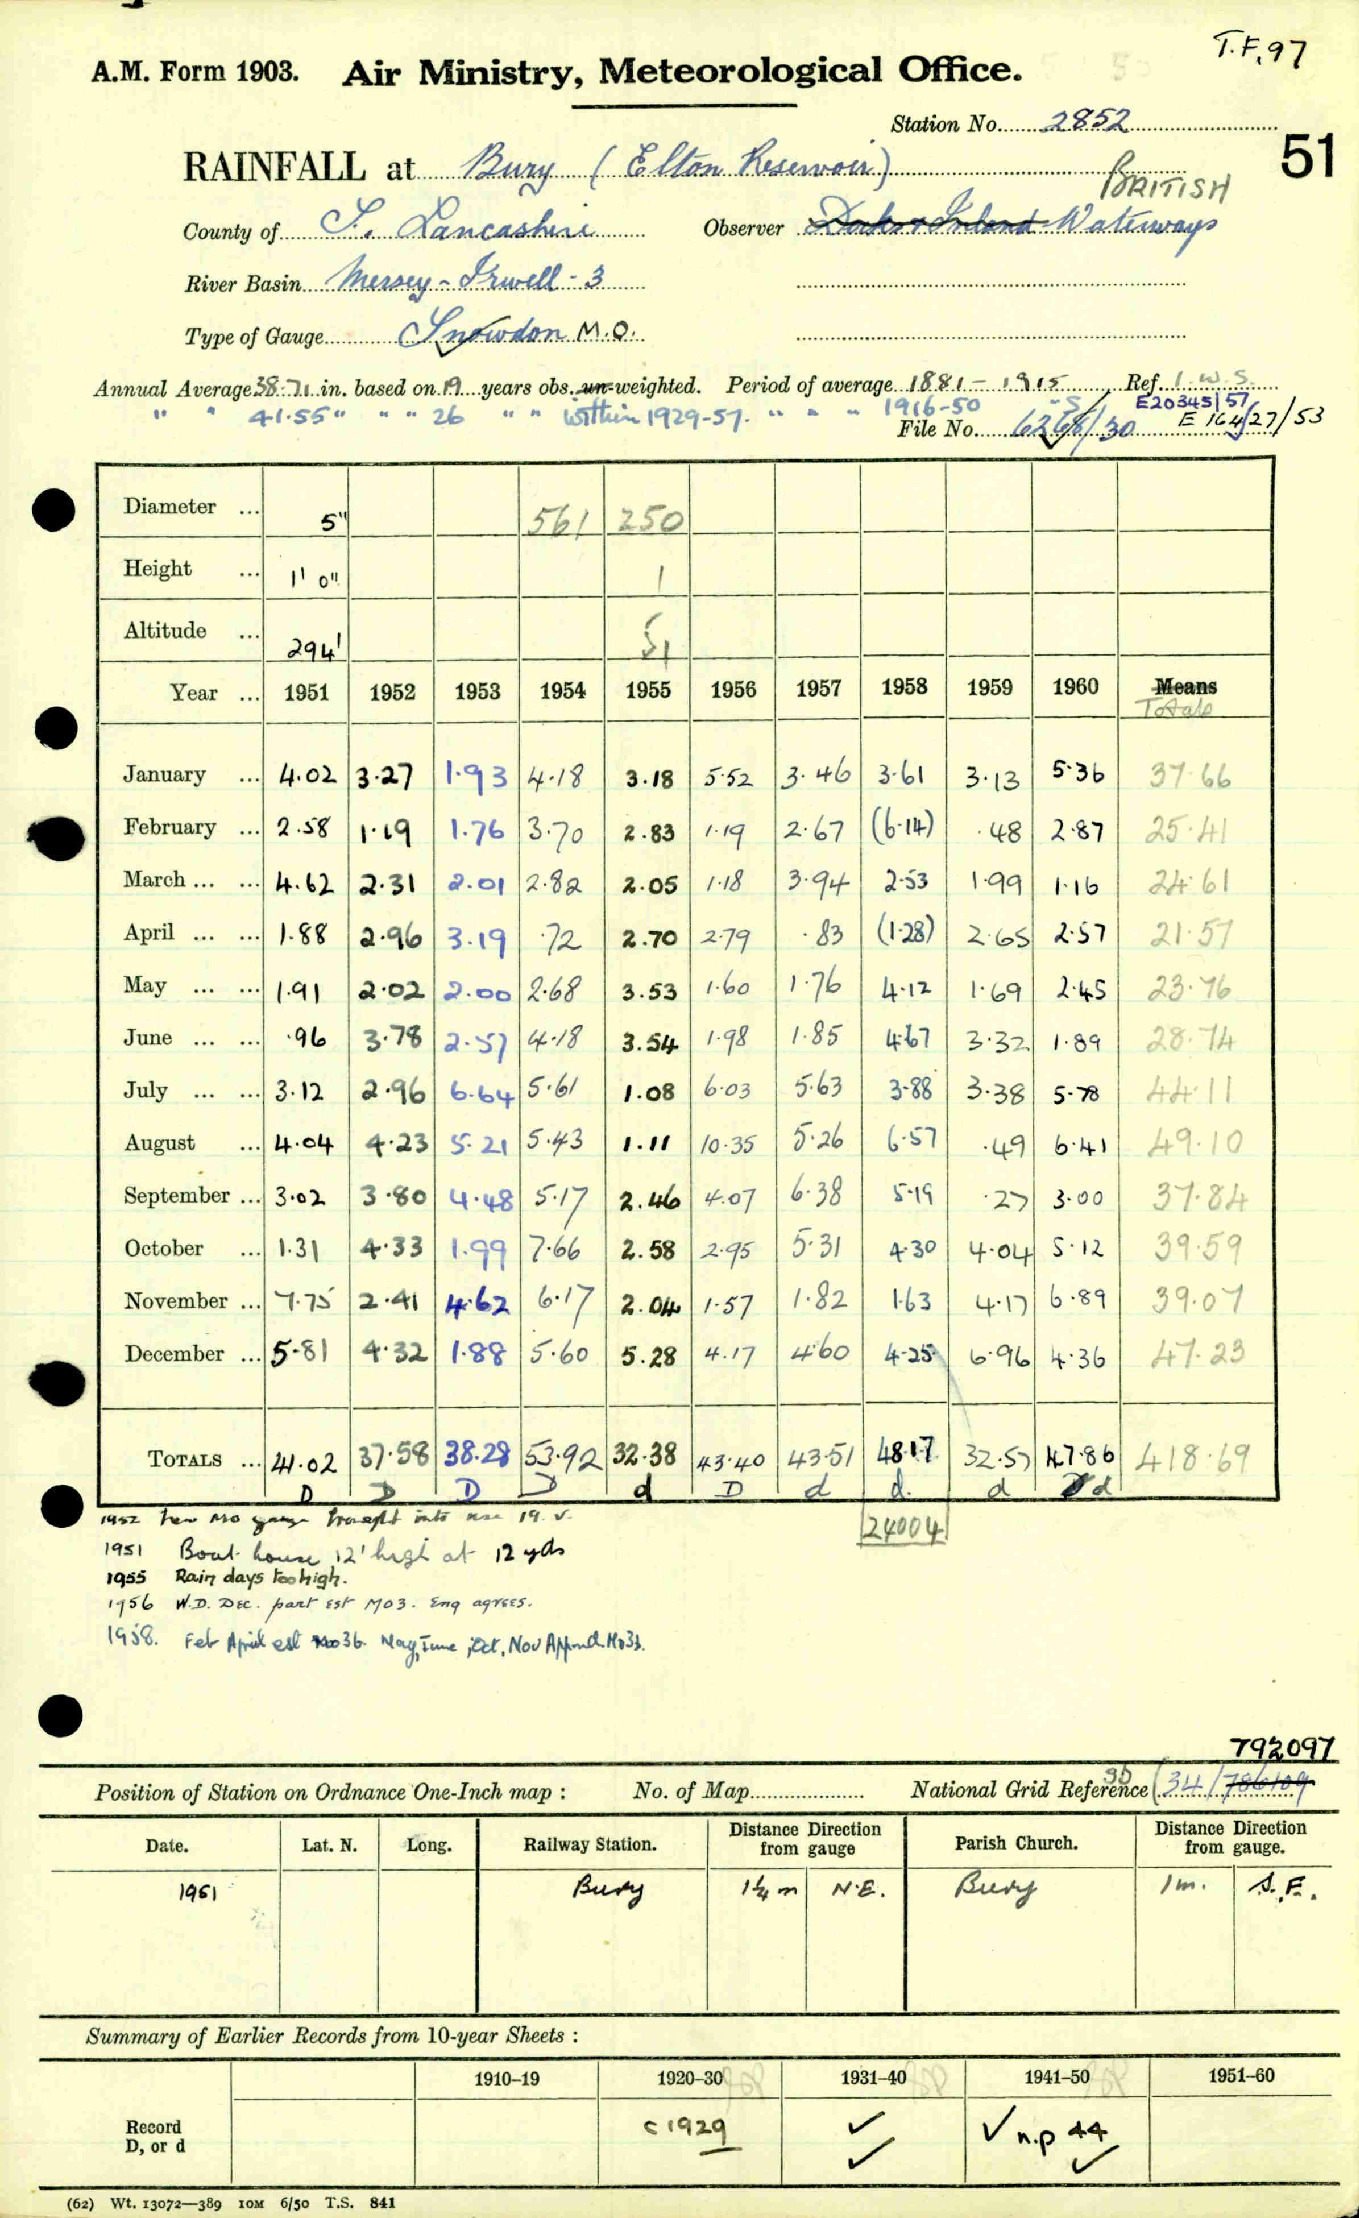 T.F. 97
A.M. Form 1903. Air Ministry, Meteorological Office.
Station No. 2852
51
RAINFALL at Bury (Elton Reservoir)
BRITISH
County of S. Lancashire Observer Docks & Inland Waterways
River Basin Mersey - Irwell - 3
Type of Gauge Snowdon M.O.
Annual Average 38.71 in. based on 19 years obs. un-weighted. Period of average 1881 - 1915 Ref. I.W.S.
" " 41.55 " " " 26 " " Within 1929-57. " " " 1916-50 E20345/57
File No. 6268/30 E 164/27/53
Diameter ... 5" 561 250
Height ... 1' 0" 1
Altitude ... 294' 51
Year ... 1951 1952 1953 1954 1955 1956 1957 1958 1959 1960 Means
Totals
January ... 4.02 3.27 1.93 4.18 3.18 5.52 3.46 3.61 3.13 5.36 37.66
February ... 2.58 1.19 1.76 3.70 2.83 1.19 2.67 (6.14) .48 2.87 25.41
March ... ... 4.62 2.31 2.01 2.82 2.05 1.18 3.94 2.53 1.99 1.16 24.61
April ... ... 1.88 2.96 3.19 .72 2.70 2.79 .83 (1.28) 2.65 2.57 21.57
May ... ... 1.91 2.02 2.00 2.68 3.53 1.60 1.76 4.12 1.69 2.45 23.76
June ... ... .96 3.78 2.57 4.18 3.54 1.98 1.85 4.67 3.32 1.89 28.74
July ... ... 3.12 2.96 6.64 5.61 1.08 6.03 5.63 3.88 3.38 5.78 44.11
August ... 4.04 4.23 5.21 5.43 1.11 10.35 5.26 6.57 .49 6.41 49.10
September ... 3.02 3.80 4.48 5.17 2.46 4.07 6.38 5.19 .27 3.00 37.84
October ... 1.31 4.33 1.99 7.66 2.58 2.95 5.31 4.30 4.04 5.12 39.59
November ... 7.75 2.41 4.62 6.17 2.04 1.57 1.82 1.63 4.17 6.89 39.07
December ... 5.81 4.32 1.88 5.60 5.28 4.17 4.60 4.25 6.96 4.36 47.23
TOTALS ... 41.02 37.58 38.28 53.92 32.38 43.40 43.51 48.17 32.57 47.86 418.69
D D D D d D d d d d
24004
1952 New MO gauge brought into use 19. v.
1951 Boat house 12' high at 12 yds
1955 Rain days too high.
1956 W.D. Dec. part est MO3. Enq agrees.
1958. Feb April est Mo3b. May, June, Oct, Nov Mo3b.
792097
Position of Station on Ordnance One-Inch map : No. of Map National Grid Reference (34/786109
SD
Date. Lat. N. Long. Railway Station. Distance Direction from gauge Parish Church. Distance Direction from gauge.
1951 Bury 1¼ m N.E. Bury 1 m. S.E.
Summary of Earlier Records from 10-year Sheets :
1910–19 1920–30 1931–40 1941–50 1951–60
Record D, or d c 1929 ✓ ✓ ✓ n.p 44 ✓
(62) Wt. 13072—389 10M 6/50 T.S. 841